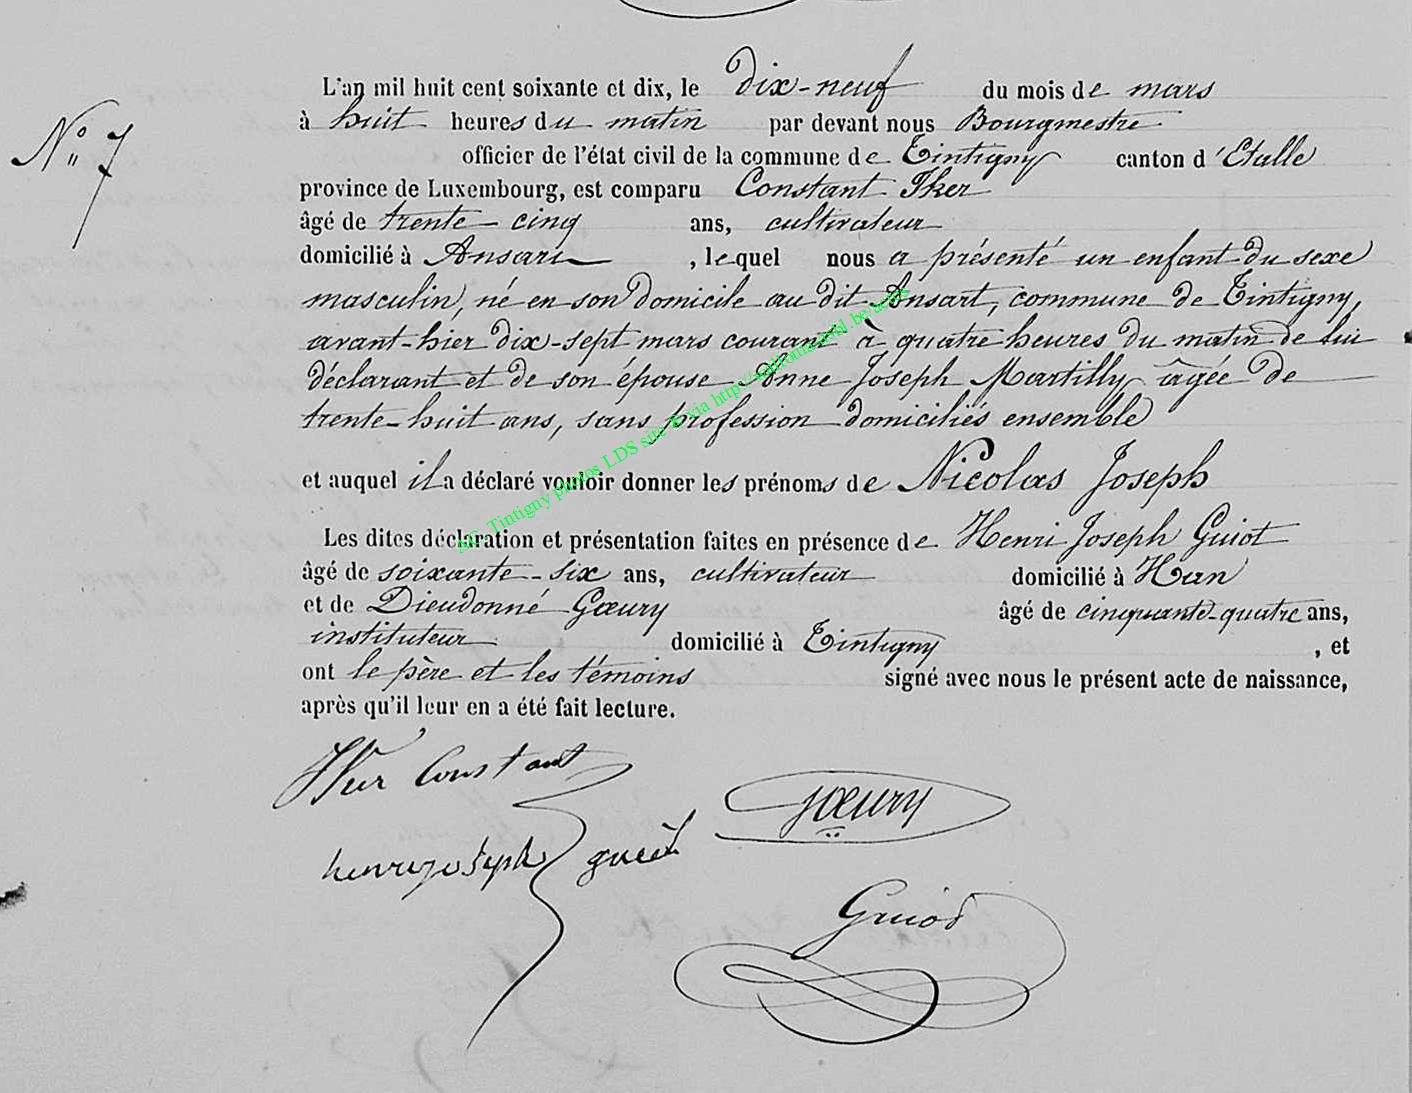 L'an mil huit cent soixante et dix, le dix-neuf du mois de mars
N° 7
à huit heures du matin par devant nous Bourgmestre
officier de l'état civil de la commune de Tintigny canton d'Etalle
province de Luxembourg, est comparu Constant Iker
âgé de trente-cinq ans, cultivateur
domicilié à Ansart, lequel nous a présenté un enfant du sexe
masculin, né en son domicile au dit Ansart, commune de Tintigny,
avant-hier dix-sept mars courant à quatre heures du matin de lui
déclarant et de son épouse Anne Joseph Martilly âgée de
trente-huit ans, sans profession domiciliés ensemble
et auquel il a déclaré vouloir donner les prénoms de Nicolas Joseph
Les dites déclaration et présentation faites en présence de Henri Joseph Guiot
âgé de soixante-six ans, cultivateur domicilié à Han
et de Dieudonné Gœury âgé de cinquante-quatre ans,
instituteur domicilié à Tintigny, et
ont le père et les témoins signé avec nous le présent acte de naissance,
après qu'il leur en a été fait lecture.
Iker Constant
Gœury
henry joseph
Guiot
Tintigny photos LDS site